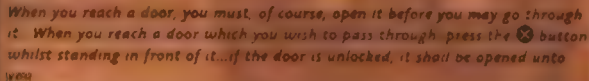 When you reach a door, you must, of course, open it before you may go through
it. When you reach a door which you wish to pass through press the ⓧ button
whilst standing in front of it...if the door is unlocked, it shall be opened unto